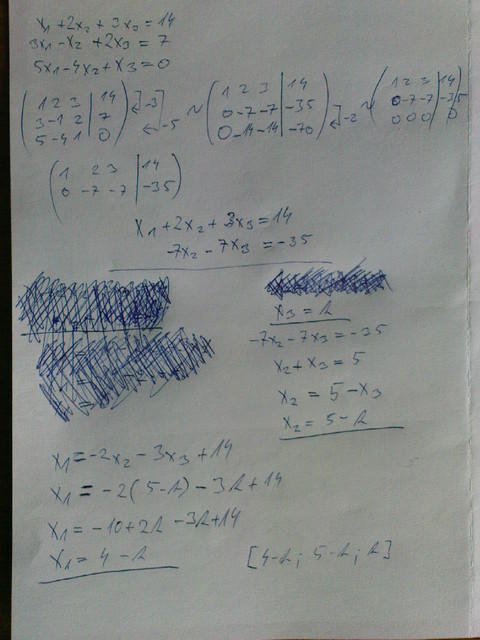 x1 + 2x2 + 3x3 = 14
3x1 - x2 + 2x3 = 7
5x1 - 4x2 + x3 = 0
( 1 2 3 | 14 ) -3 ~ ( 1 2 3 | 14 ) ~ ( 1 2 3 | 14 )
( 3 -1 2 | 7 ) -5 ( 0 -7 -7 | -35 ) -2 ( 0 -7 -7 | -35 )
( 5 -4 1 | 0 ) ( 0 -14 -14 | -70 ) ( 0 0 0 | 0 )
( 1 2 3 | 14 )
( 0 -7 -7 | -35 )
x1 + 2x2 + 3x3 = 14
-7x2 - 7x3 = -35
x3 = r
-7x2 - 7x3 = -35
x2 + x3 = 5
x2 = 5 - x3
x2 = 5 - r
x1 = -2x2 - 3x3 + 14
x1 = -2(5-r) - 3r + 14
x1 = -10 + 2r - 3r + 14
x1 = 4 - r
[4-r; 5-r; r]